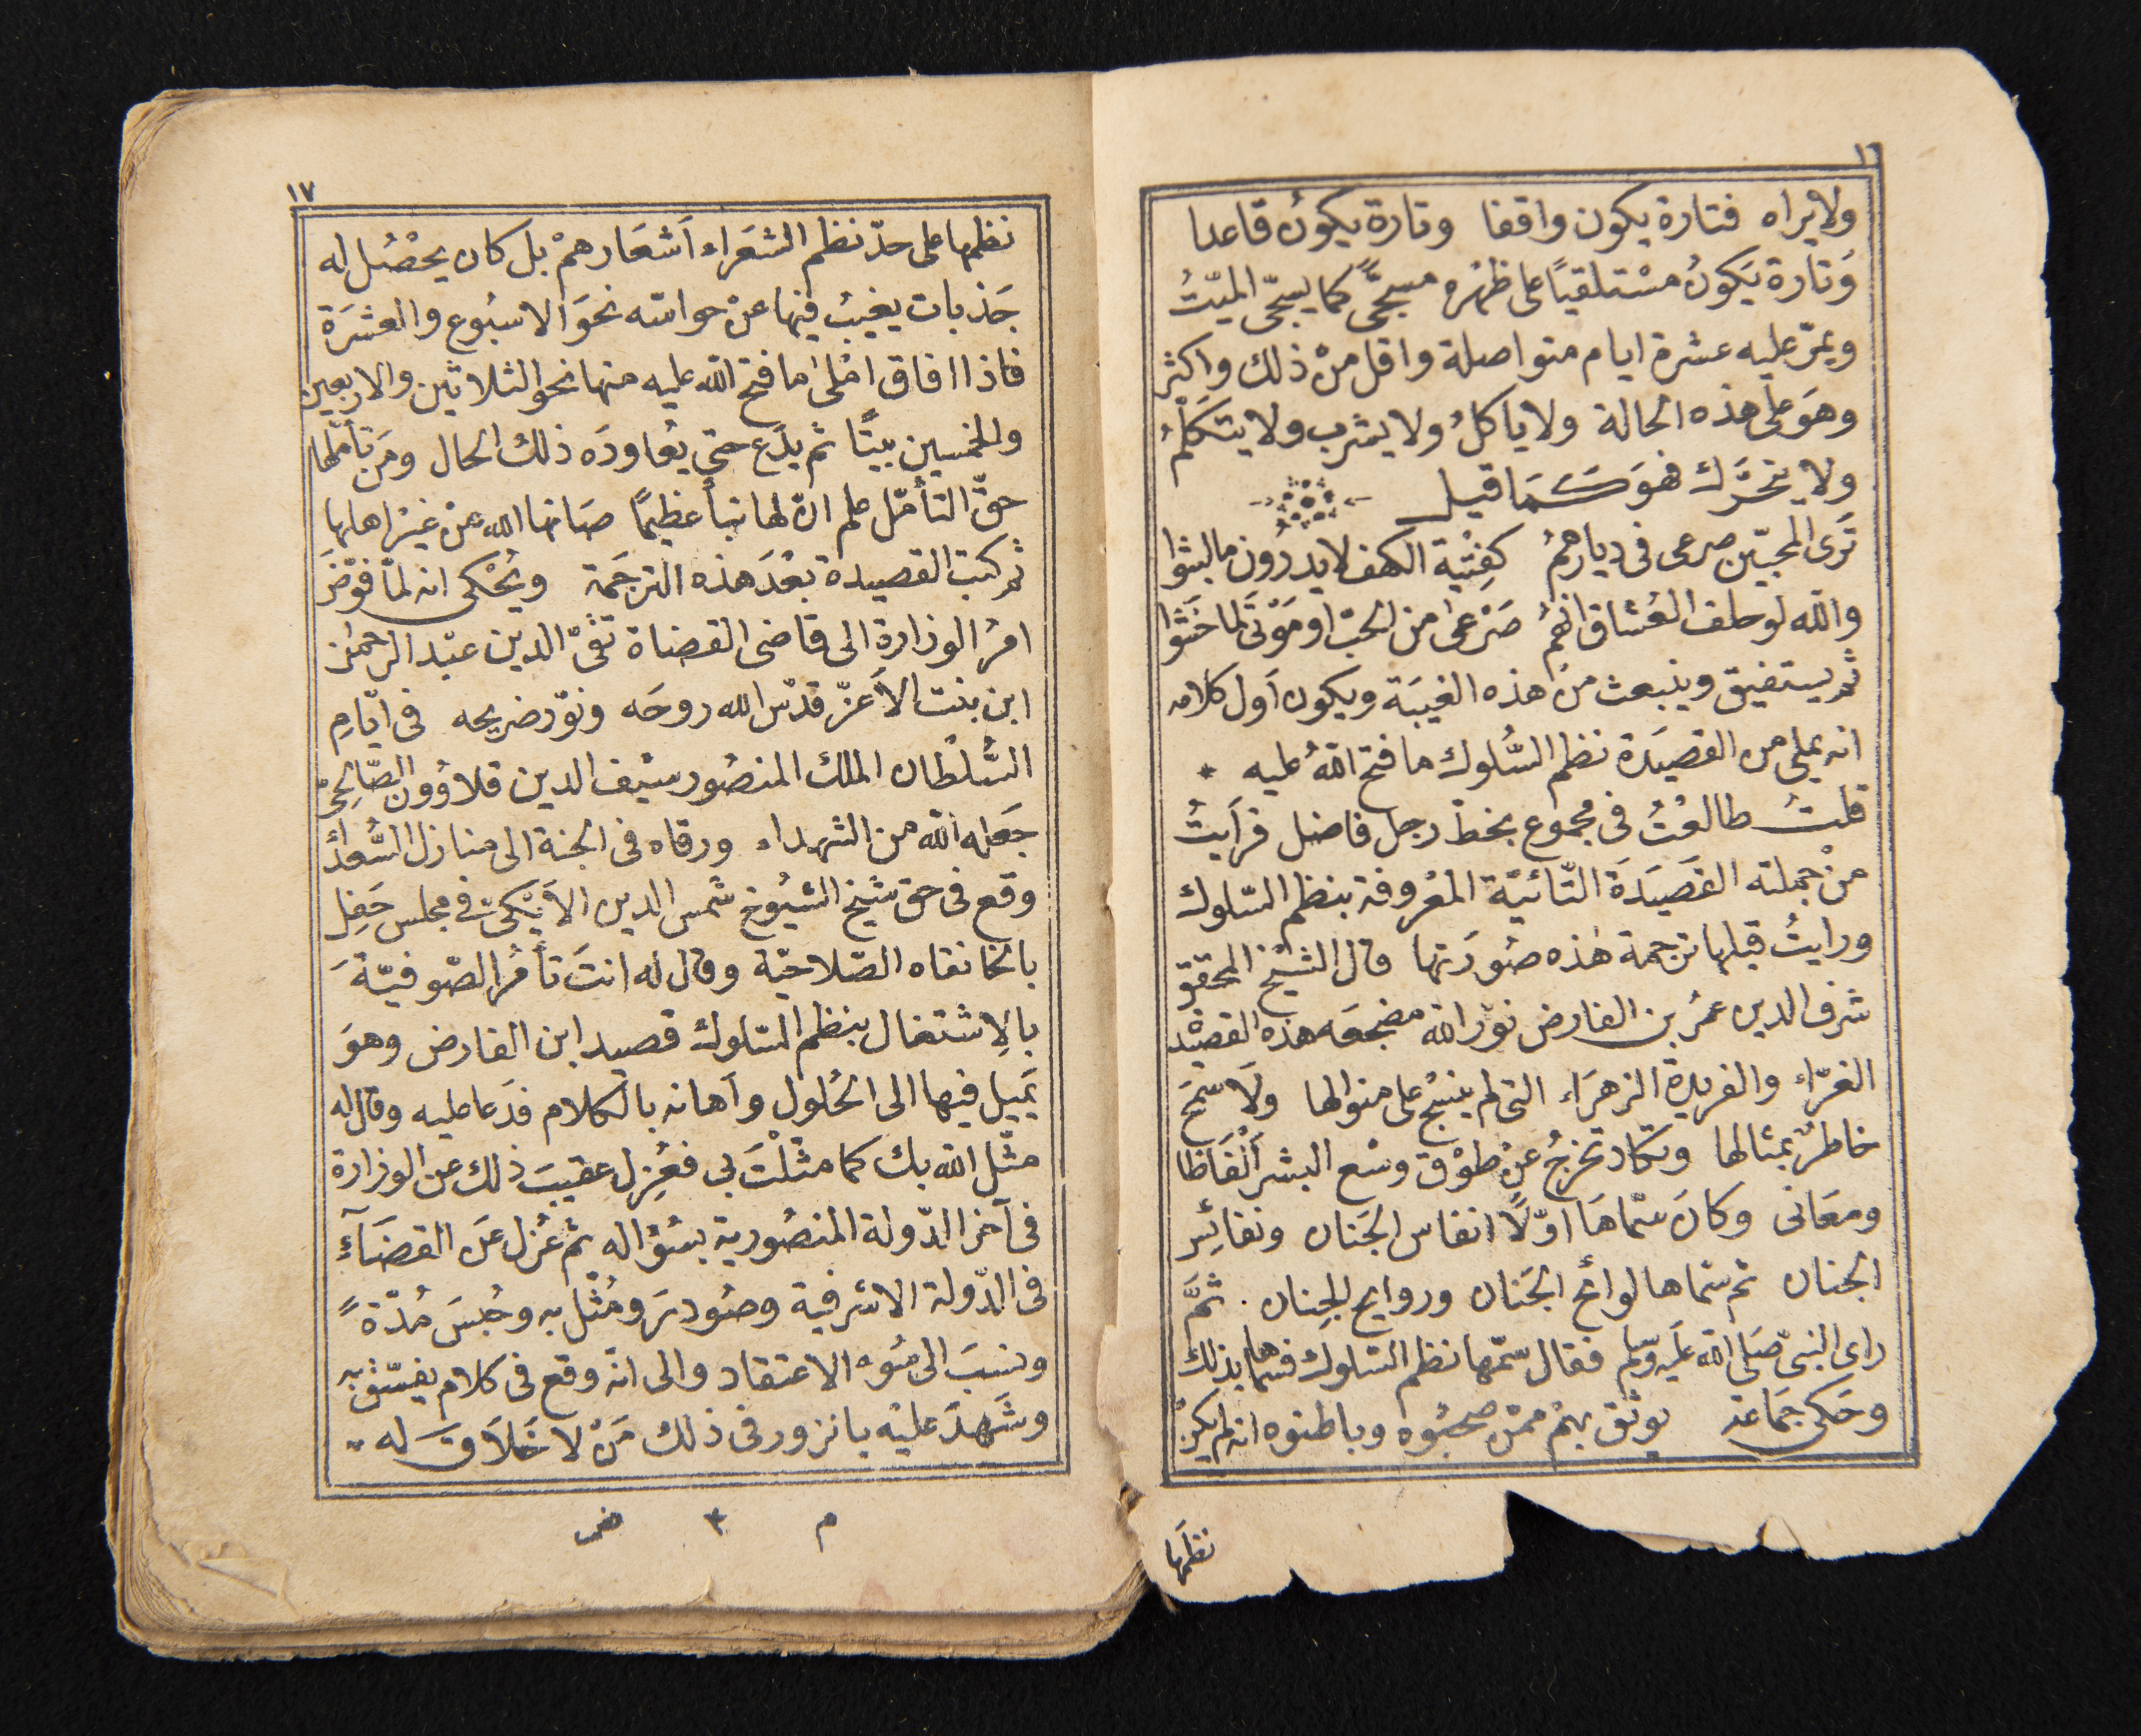 ١٦
ولا يراه فتارة يكون واقفا وتارة يكونُ قاعدا
وَتارة يَكونُ مسْتلقيًا على ظهْره مسجّىً كما يسجّى الميّتُ
ويمرّ عليه عشرة ايام متواصلة واقل منْ ذلك واكثر
وهوَ على هذه الحالة ولا ياكلُ ولا يشرب ولا يتكلّمُ
ولا يتحَرَّك فهوَ كَمَا قيل
تَرَى المحبّين صرعى فى ديارهمُ كفِتْيَة الكهف لا يدرُون ما لبثوا
والله لو حلف العُشاق انّهمُ صَرْعىٰ من الحبّ او مَوْتى لما حَنَثوا
ثم يستفيق وينبعث منْ هذه الغيبَة ويكون أول كلامه
انه يملى من القصيَدة نظم السُّلوك ما فتح اللهُ عليه *
قلتُ طالعْتُ فى مجموع بخطّ رجل فاضل فرَايتُ
منْ جملته القَصيَدَة التّائيّة المعْروفة بنظم السّلوك
ورايتُ قبلها ترجمة هٰذه صُورَتها قال الشيْخ المحقق
شرف الدين عمُر بن الفارض نوّر الله مضجعَه هذه القصيْد
الغرّاء والفريدة الزهرَاء التى لم ينسَج على منوالها ولَا سمَحَ
خاطرٌ بمثالها وتكاد تخرجُ عنْ طوْق وسْع البشر ألْفَاظا
ومعَانى وكانَ سَمّاهَا اوّلًا انفاس الجَنان ونفائِس
الجنان ثم سمّاها لوائح الجَنان وروايح الجِنان. ثمَّ
راى النبىّ صَلى الله عَليه وسلم فقال سَمّها نظم السّلوك فسماها بذلك
وحَكى جَمَاعة يوثق بهمْ ممّنْ صحبُوه وباطنوه انه لم يكنْ
نظمَها
١٧
نظمها على حدّ نظم الشعَراء أشعَارهمْ بل كان يحْصُل له
جَذبات يغيبُ فيها عنْ حواسّه نحوَ الاسبُوع والعشرَة
فاذا افاق امْلىٰ ما فتح الله عليه منها نحو الثلاثين والاربعين
والخمسين بيتًا ثم يدَع حتى يُعاودَه ذلك الحال ومَن تأمّلها
حقّ التأمّل علم انّ لها نبأ عظيمًا صَانها الله عن غيْر اهلها
ثم كتب القصيدة بعْدَ هذه الترجَمة ويُحْكى انه لمّا فوّضَ
امرُ الوزارة الى قاضى القضاة تقىّ الدين عبْد الرحمٰن
ابن بنت الأعزّ قدّس الله روحَه ونوّر ضريحه فى ايّامِ
السُّلطان الملك المنصُور سيْف الدين قلاوُون الصّالحىّ
جَعله الله من الشهداء ورقاه فى الجنة الى منازل السُّعدَاءْ
وقع فى حق شيْخ الشيُوخ شمس الدين الأيْكىّ فى مجلس حَفِل
بالخانقاه الصّلاحيّة وقال له انتَ تأمُر الصّوفيّةَ
بالِاشتغال بنظم السّلوك قصيد ابن الفارض وهوَ
يَميل فيها الى الحُلول وأهانه بالكلام فدَعا عليه وقال له
مثّل الله بك كما مثّلْتَ بى فعُزِل عقيبَ ذلك عن الوزارة
فى آخر الدّولة المنصُورية بسُؤاله ثم عُزل عَن القضَآءْ
فى الدّولة الاشرفية وصُودرَ ومُثّل به وحُبسَ مُدّةً
ونسبَ الى سُوء الاعتقاد والى انّه وقع فى كلام يفسّق به
وشَهدَ عليْه بالزور فى ذلك مَنْ لا خَلَاقَ له
م ٣ ض